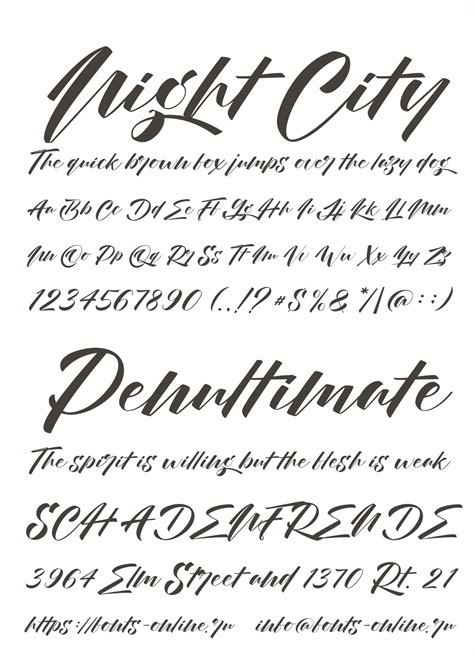 Night City
The quick brown fox jumps over the lazy dog
Aa Bb Cc Dd Ee Ff Gg Hh Ii Jj Kk Ll Mm
Nn Oo Pp Qq Rr Ss Tt Uu Vv Ww Xx Yy Zz
1234567890 (..!? #$%& */|@::)
Penultimate
The spirit is willing but the flesh is weak
SCHADENFREUDE
3964 Elm Street and 1370 Rt. 21
https://fonts-online.ru info@fonts-online.ru